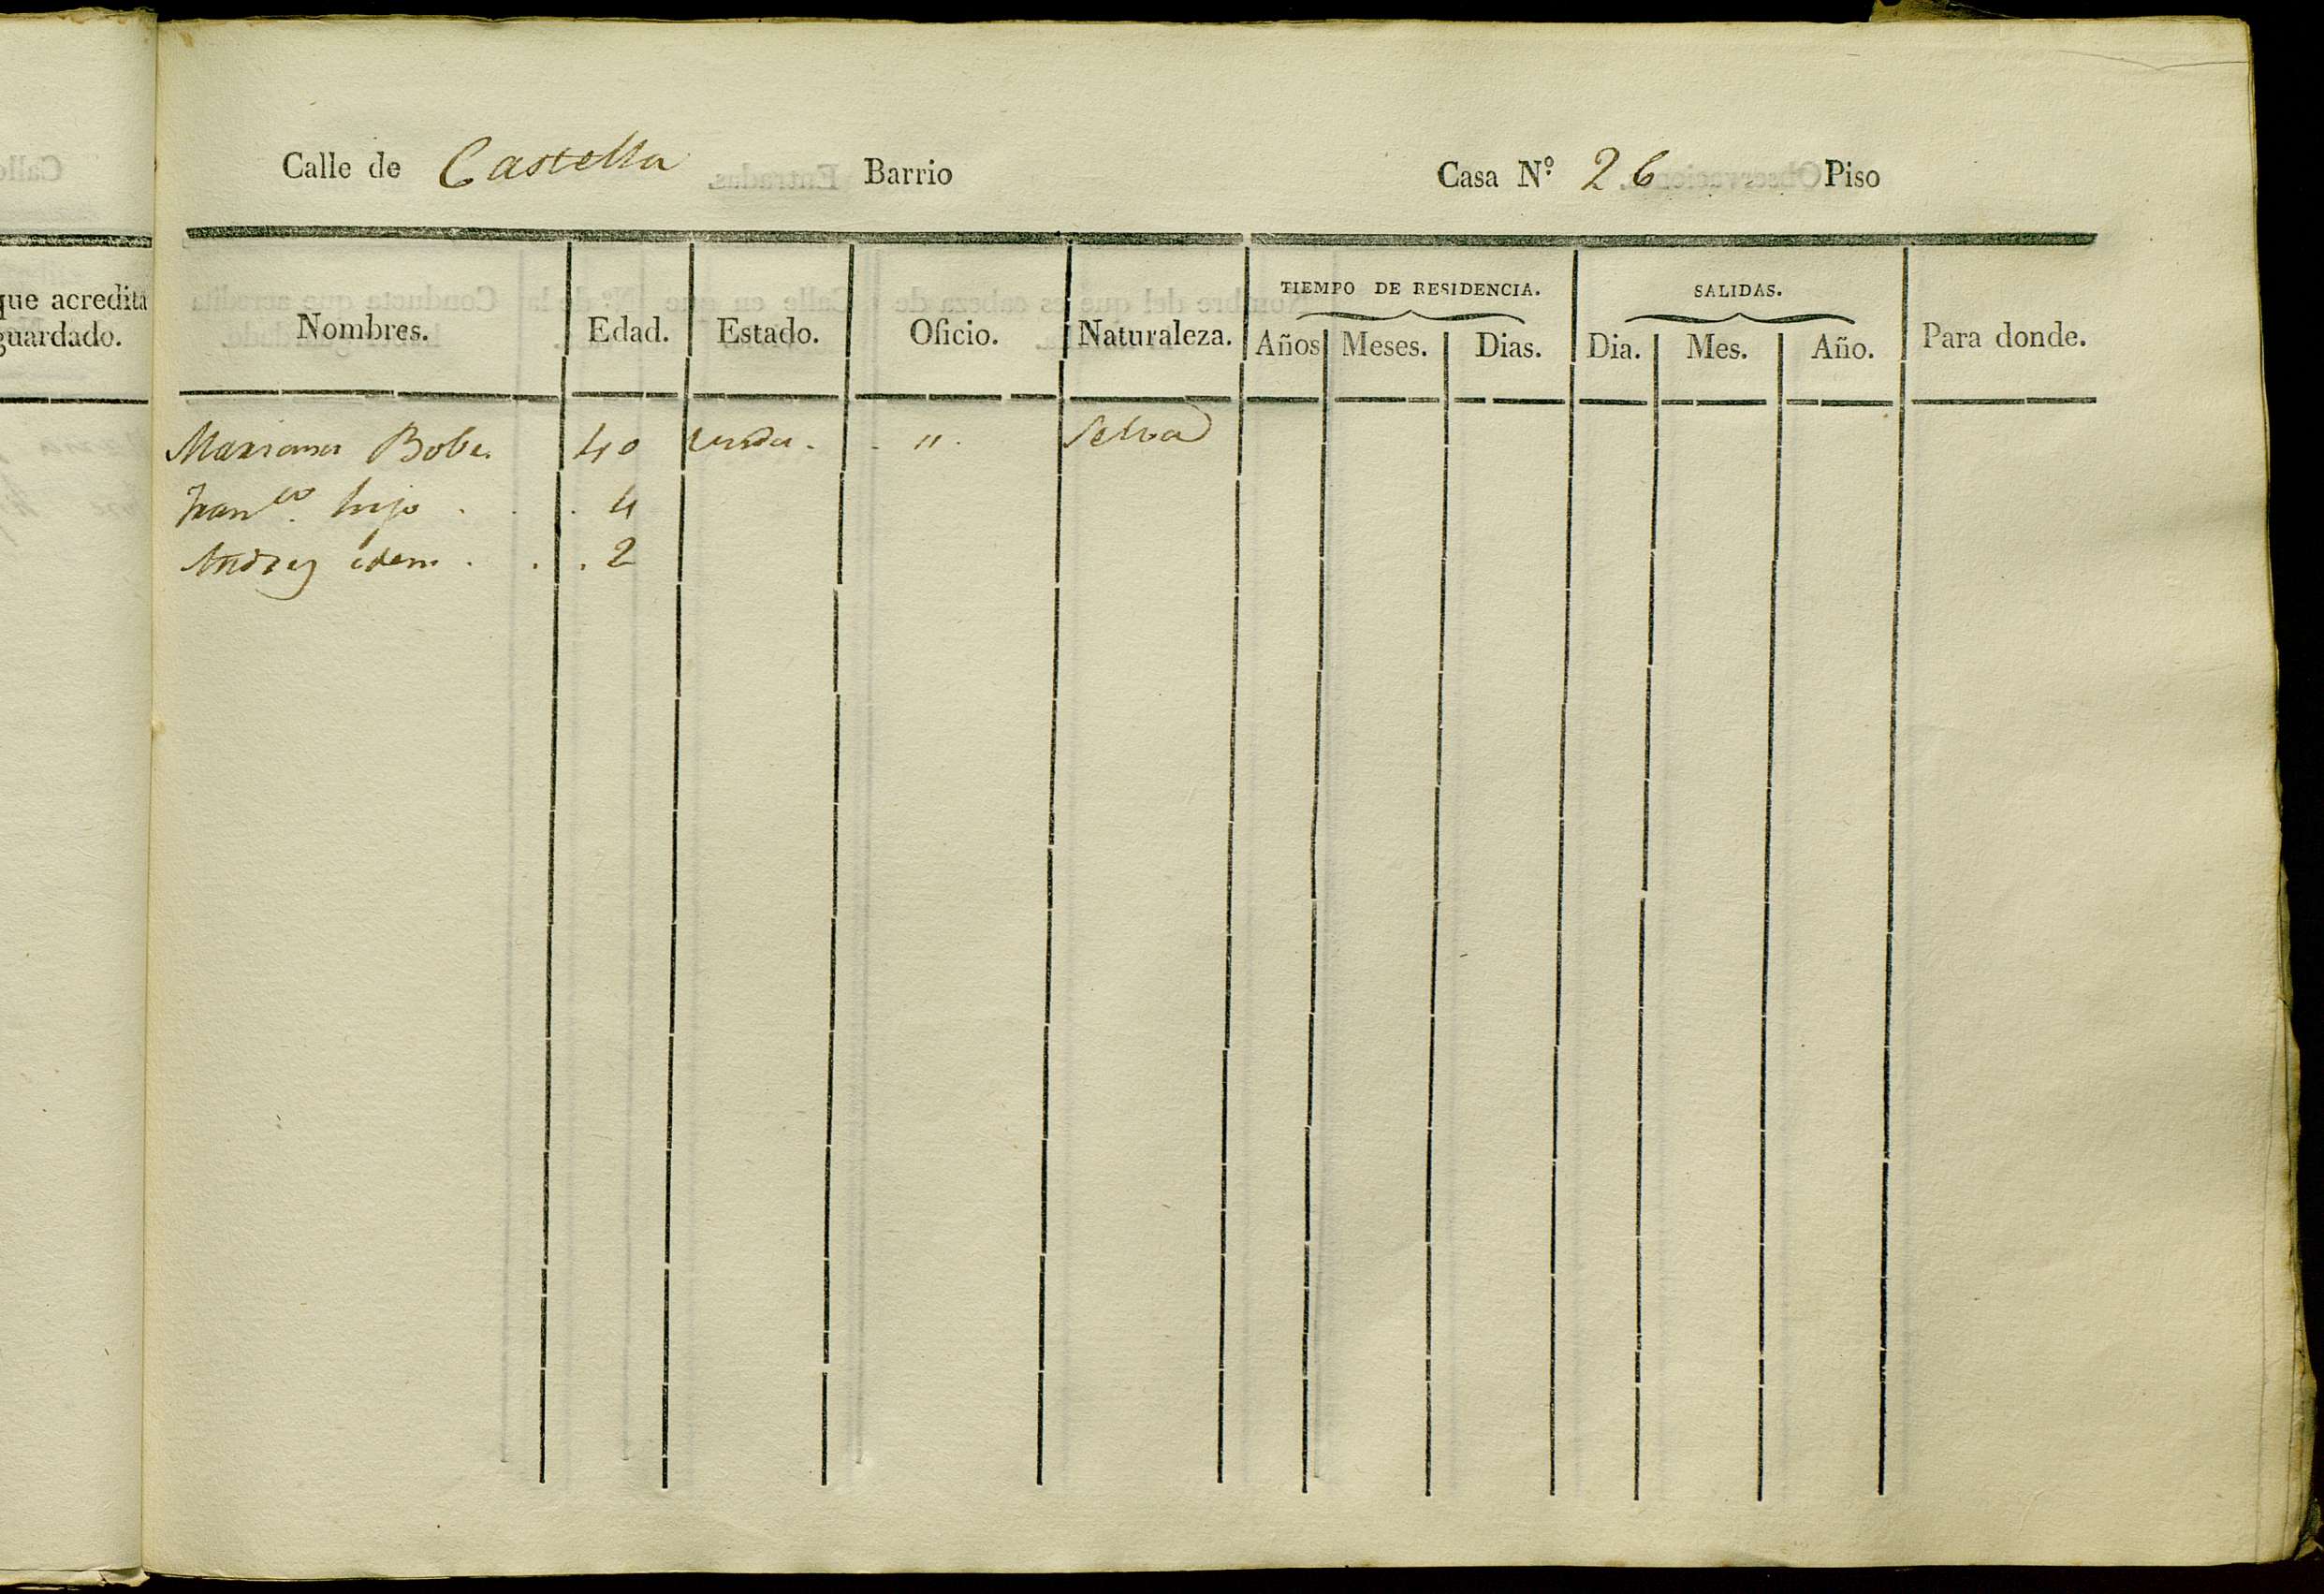 Calle de Castella Barrio Casa N.º 26 Piso
que acredita
guardado.
Nombres. Edad. Estado. Oficio. Naturaleza. TIEMPO DE RESIDENCIA. Años Meses. Dias. SALIDAS. Dia. Mes. Año. Para donde.
Mariana Bobe. 40 viuda. " Selva
Fran.co hijo . . . 4
Andres idem . . . 2